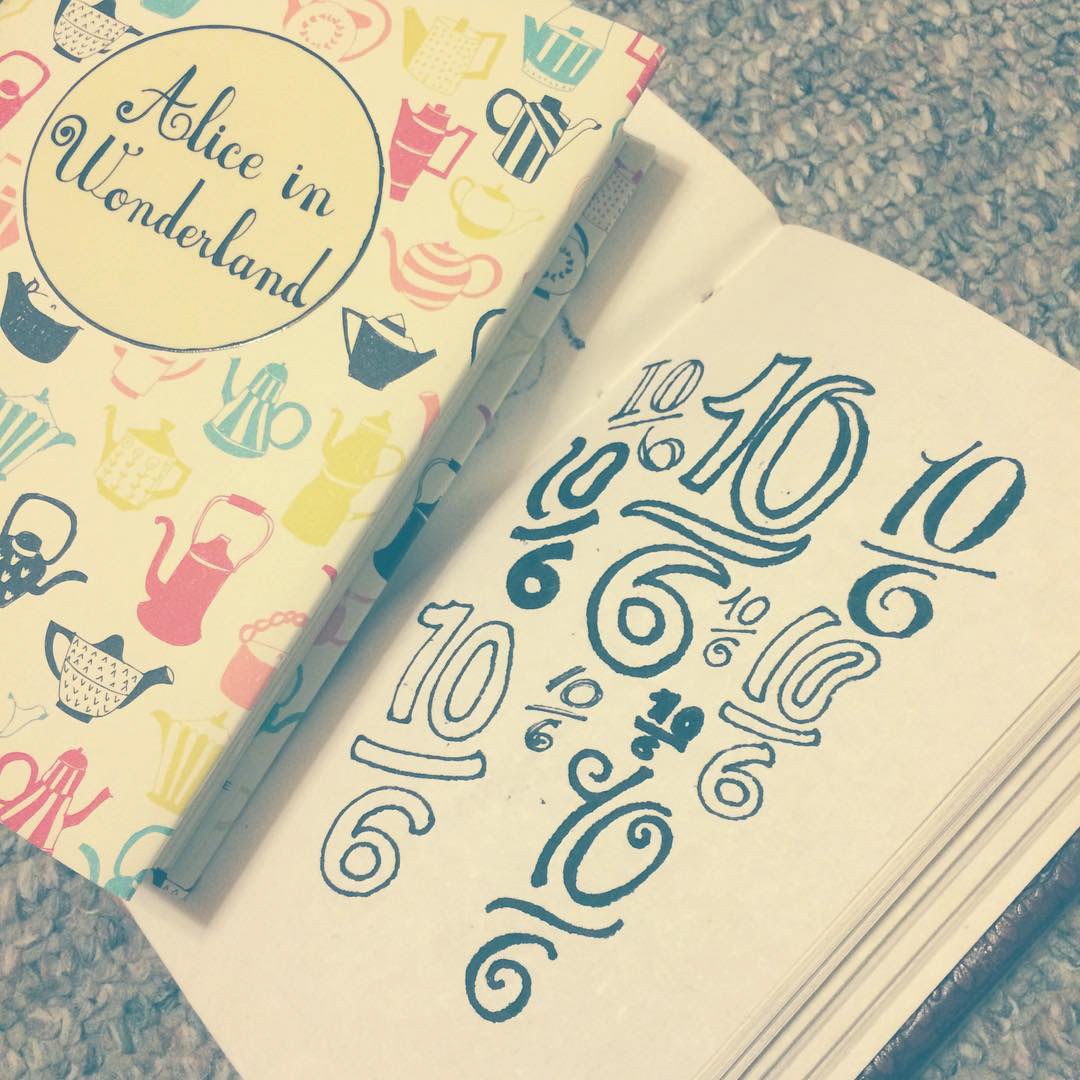 Alice in
Wonderland
10
6
10
6
10
6
10
6
10
6
10
6
10
6
10
6
10
6
10
6